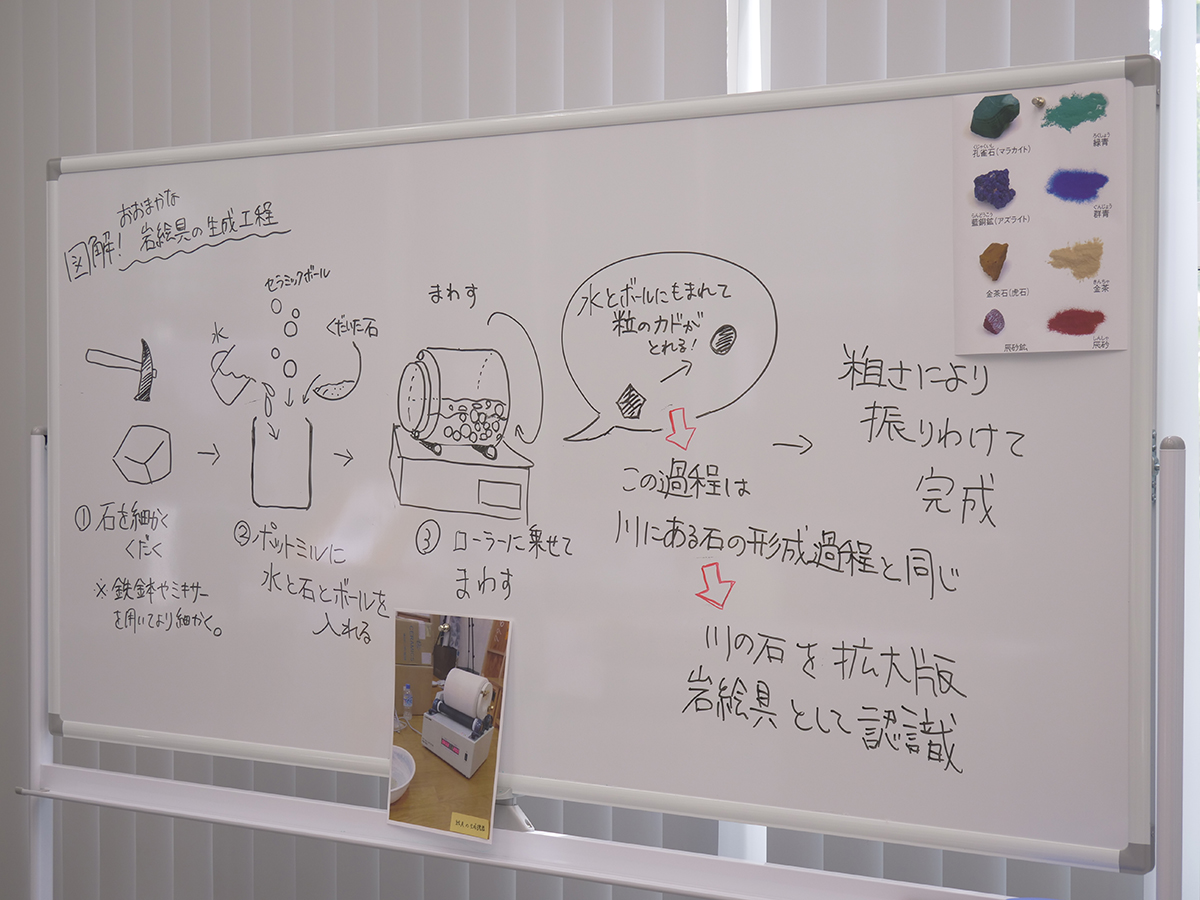 おおまかな
図解！岩絵具の生成工程
セラミックボール
水
くだいた石
①石を細かく
くだく
※鉄鉢やミキサー
を用いてより細かく。
②ポットミルに
水と石とボールを
入れる
まわす
③ローラーに乗せて
まわす
水とボールにもまれて
粒のカドが
とれる！
この過程は
川にある石の形成過程と同じ
川の石を拡大版
岩絵具として認識
粗さにより
振りわけて
完成
くじゃくいし
孔雀石(マラカイト)
ろくしょう
緑青
らんどうこう
藍銅鉱(アズライト)
ぐんじょう
群青
金茶石(虎石)
きんちゃ
金茶
辰砂鉱
しんしゃ
辰砂